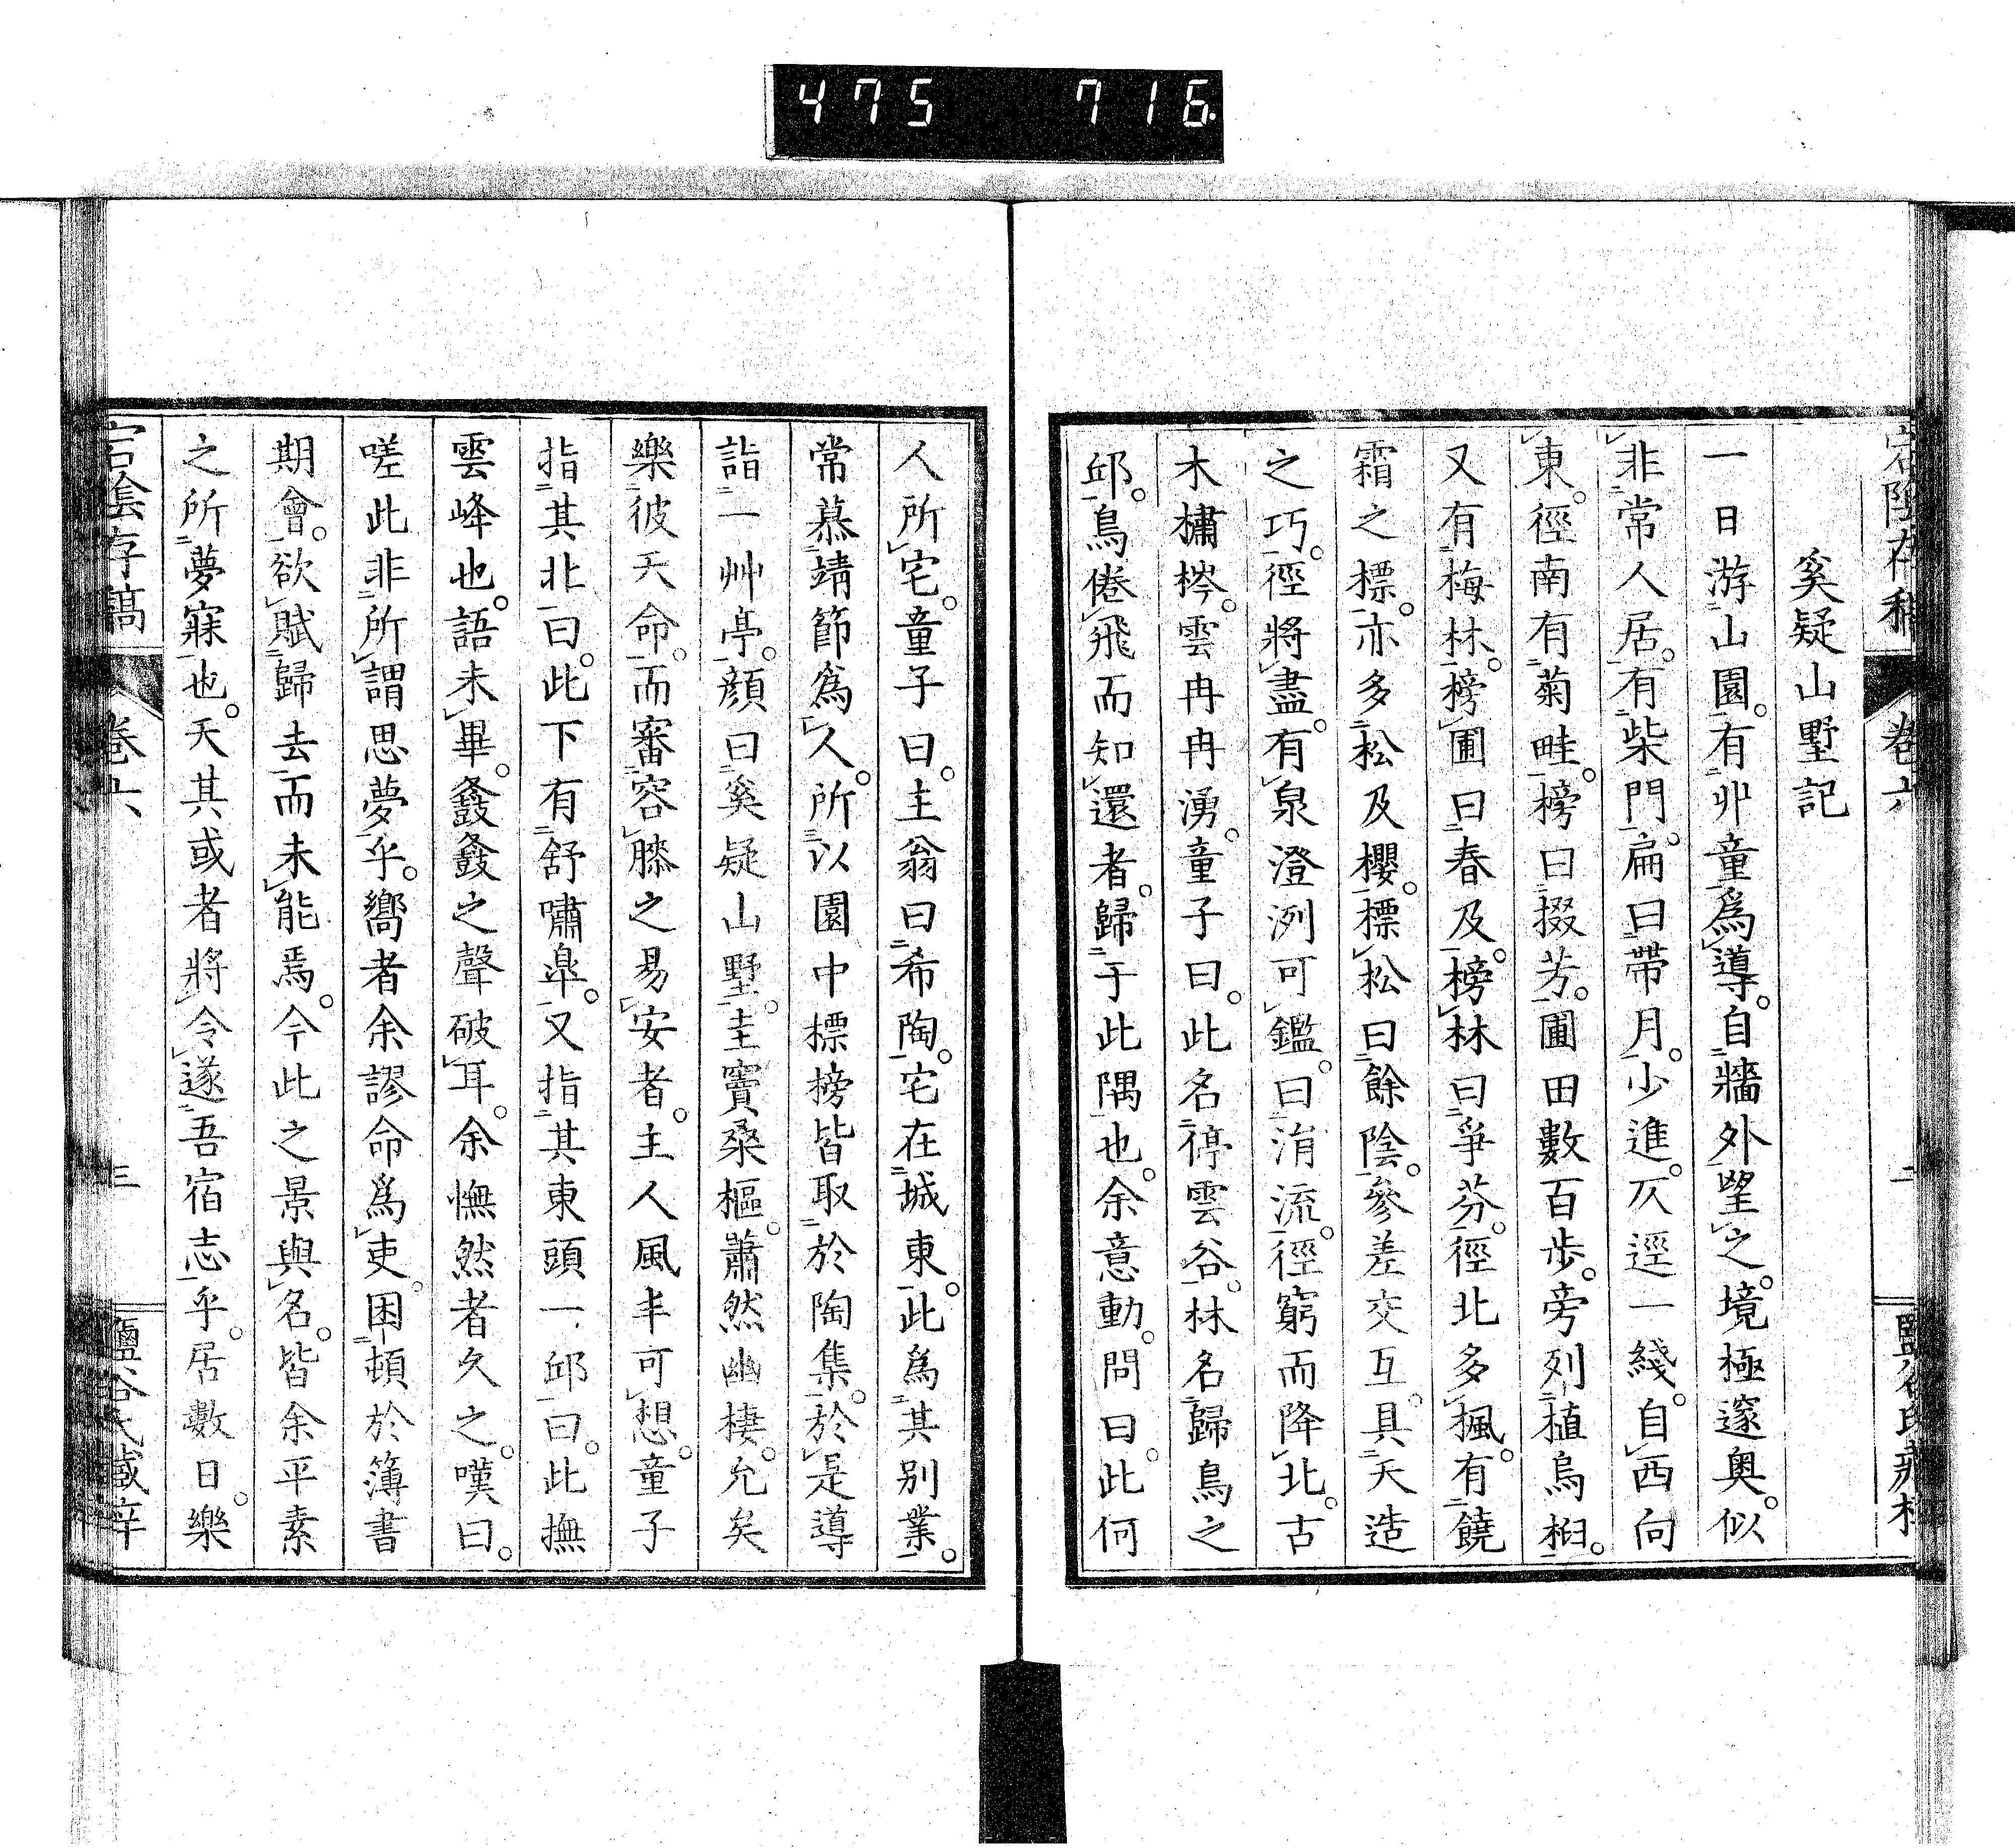 475 716
宕陰存稿 卷六 二 鹽谷氏藏梓
奚疑山墅記
一日游山園。有丱童爲導。自牆外望之。境極邃奧。似
非常人居。有柴門。扁曰帶月。少進。仄逕一綫。自西向
東。徑南有菊畦。榜曰掇芳。圃田數百步。旁列植烏桕。
又有梅林。榜圃曰春及。榜林曰爭芬。徑北多楓。有饒
霜之標。亦多松及櫻。標松曰餘陰。參差交互。具天造
之巧。徑將盡。有泉澄洌可鑑。曰涓流。徑窮而降北。古
木橚椮。雲冉冉湧。童子曰。此名停雲谷。林名歸鳥之
邱。鳥倦飛而知還者。歸于此隅也。余意動。問曰。此何
人所宅。童子曰。主翁曰希陶。宅在城東。此爲其别業。
常慕靖節爲人。所以園中標榜皆取於陶集。於是導
詣一艸亭。顏曰奚疑山墅。圭竇桑樞。蕭然幽棲。允矣
樂彼天命。而審容膝之易安者。主人風丰可想。童子
指其北曰。此下有舒嘯皐。又指其東頭一邱曰。此撫
雲峰也。語未畢。鼕鼕之聲破耳。余憮然者久之。嘆曰。
嗟此非所謂思夢乎。嚮者余謬命爲吏。困頓於簿書
期會。欲賦歸去而未能焉。今此之景與名。皆余平素
之所夢寐也。天其或者將令遂吾宿志乎。居數日。樂
宕陰存稿 卷六 三 鹽谷氏藏梓